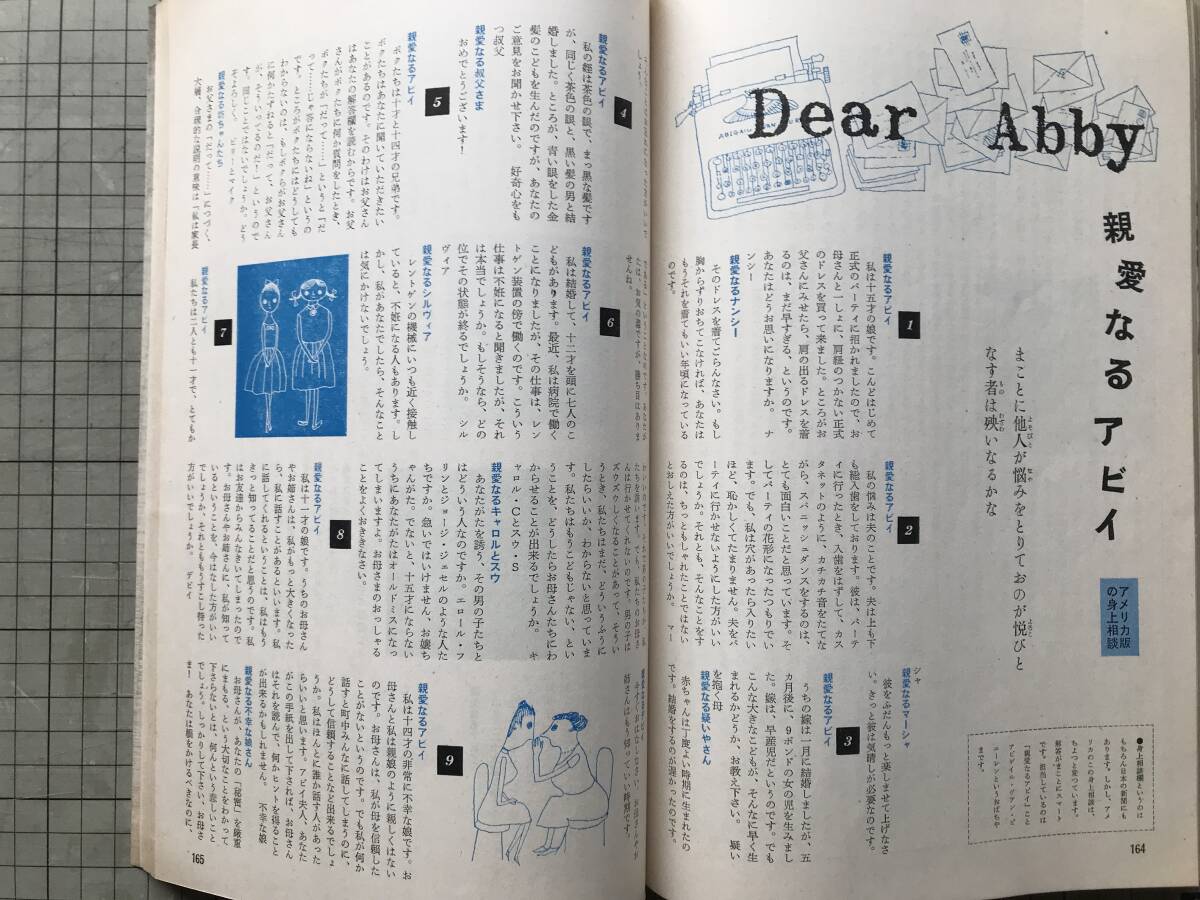 Dear Abby
ABIGAIL VAN BUREN
親愛なるアビイ
アメリカ版
の身上相談
まことに他人が悩みをとりておのが悦びと
なす者は殃いなるかな
●身上相談欄というのは
もちろん日本の新聞にも
あります。しかし、アメ
リカのこの身上相談は、
ちょっと変っています。
解答がまことにスマート
です。担当しているのは
「親愛なるアビイ」こと
アビゲイル・ヴァン・ビ
ューレンというおばちゃ
まです。
164
1
親愛なるアビイ
私は十五才の娘です。こんどはじめて
正式のパーティに招かれましたので、お
母さんと一しょに、肩紐のつかない正式
のドレスを買って来ました。ところがお
父さんにみせたら、肩の出るドレスを着
るのは、まだ早すぎる、というのです。
あなたはどうお思いになりますか。　ナ
ンシー
親愛なるナンシー
そのドレスを着てごらんなさい。もし
胸からずり落ちてこなければ、あなたは
もうそれを着てもいい年頃になっている
のです。
2
親愛なるアビイ
私の悩みは夫のことです。夫は上も下
も総入歯をしております。彼は、パーテ
イに行ったとき、入歯をはずして、カス
タネットのように、カチカチ音をたてな
がら、スパニッシュダンスをするのは、
とても面白いことだと思っています。そ
してパーティの花形になったつもりでい
ます。でも、私は穴があったら入りたい
ほど、恥かしくてたまりません。夫をパ
ーティに行かせないようにした方がいい
でしょうか。それとも、そんなことをす
るのは、ちっともしゃれたことではない
とおしえた方がいいでしょうか。　マー
シャ
親愛なるマーシャ
彼をふだんもっと楽しませて上げなさ
い。きっと彼は気晴しが必要なのです。
3
親愛なるアビイ
うちの嫁は一月に結婚しましたが、五
ヵ月後に、9ポンドの女の児を生みまし
た。嫁は、早産児だというのです。でも
こんな大きなこどもが、そんなに早く生
まれるかどうか、お教え下さい。　疑い
を抱く母
親愛なる疑いやさん
赤ちゃんは丁度よい時期に生まれたの
です。結婚をするのが遅かったのです。
4
親愛なるアビイ
私の姪は茶色の眼で、まっ黒な髪です
が、同じく茶色の眼と、黒い髪の男と結
婚しました。ところが、青い眼をした金
髪のこどもを生んだのですが、あなたの
ご意見をお聞かせ下さい。　好奇心をも
つ叔父
親愛なる叔父さま
おめでとうございます！
5
親愛なるアビイ
ボクたちは十才と十四才の兄弟です。
ボクたちはあなたに聞いていただきたい
ことがあるのです。そのわけはお父さん
はあなたの解答欄を読むからです。お父
さんがボクたちに何か質問をしたとき、
ボクたちが「だって……」というと「だ
って……じゃ答にならないね」というの
です。ところがボクたちにはどうしても
わからないのは、もしボクらがお父さん
に何かたずねると「だって、お父さん
が、そういってるのだ！」というので
す。同じことではないでしょうか。どう
ぞよろしく。　ビリーとマイク
親愛なる坊ちゃんたち
お父さまの「だって……」につづく、
大嘘、合理的な説明の意味は「私は家長
せんね。
6
親愛なるアビイ
私は結婚して、十二才を頭に七人のこ
どもがあります。最近、私は病院で働く
ことになりましたが、その仕事は、レン
トゲン装置の傍で働くのです。こういう
仕事は不妊になると聞きましたが、それ
は本当でしょうか。もしそうなら、どの
位でその状態が終るでしょうか。　シル
ヴィア
親愛なるシルヴィア
レントゲンの機械にいつも近く接触し
ていると、不妊になる人もあります。し
かし、私があなたでしたら、そんなこと
は気にかけないでしょう。
7
親愛なるアビイ
私たちは二人とも十一才で、とてもか
ズウズウしくなることがあって、そうい
うとき、私たちはまだ、どういうふうに
したらいいか、わからないと思っていま
す。私たちはもうこどもじゃない、とい
うことを、どうしたらお母さんたちにわ
からせることが出来るでしょうか。　キ
ャロル・Cとスウ・S
親愛なるキャロルとスウ
あなたがたを誘う、その男の子たちと
はどういう人なのですか。エロール・フ
リンとジョージ・ジェセルのような人た
ちですか。急いではいけません、お嬢ち
ゃんがた。でないと、十五才にならない
うちにあなたがたはオールドミスになっ
てしまいますよ。お母さまのおっしゃる
ことをよくおききなさい。
8
親愛なるアビイ
私は十一才の娘です。うちのお母さん
やお姉さんは、私がもっと大きくなった
ら、私に話すことがあるといいます。私
に話してくれるということは、私はもう
きっと知ってることだと思うのです。私
はお友達からみんなきいてしまったので
す。お母さんやお姉さんに、私が知って
いるということを、今はなした方がいい
でしょうか、それとももうすこし待った
方がいいでしょうか。　デビイ
9
親愛なるアビイ
私は十四才の非常に不幸な娘です。お
母さんと私は親娘のように親しくはない
のです。お母さんは、私が母を信頼した
ことがないというのです。でも私が何か
話すと町中みんなに話してしまうのに、
どうして信頼することなど出来るでしょ
うか。私はほんとに誰か話す人があった
らいいと思います。アビイ夫人、あなた
がこの手紙を出して下されば、お母さん
はそれを読んで、何かヒントを得ること
が出来るかもしれません。　不幸な娘
親愛なる不幸な娘さん
お母さんが、あなたの「秘密」を厳重
にまもる、という大切なことをわかって
下さらないとは、何んという悲しいこと
でしょう。しっかりして下さい、お母さ
ま！　あなたは橋をかけるべきなのに、
165